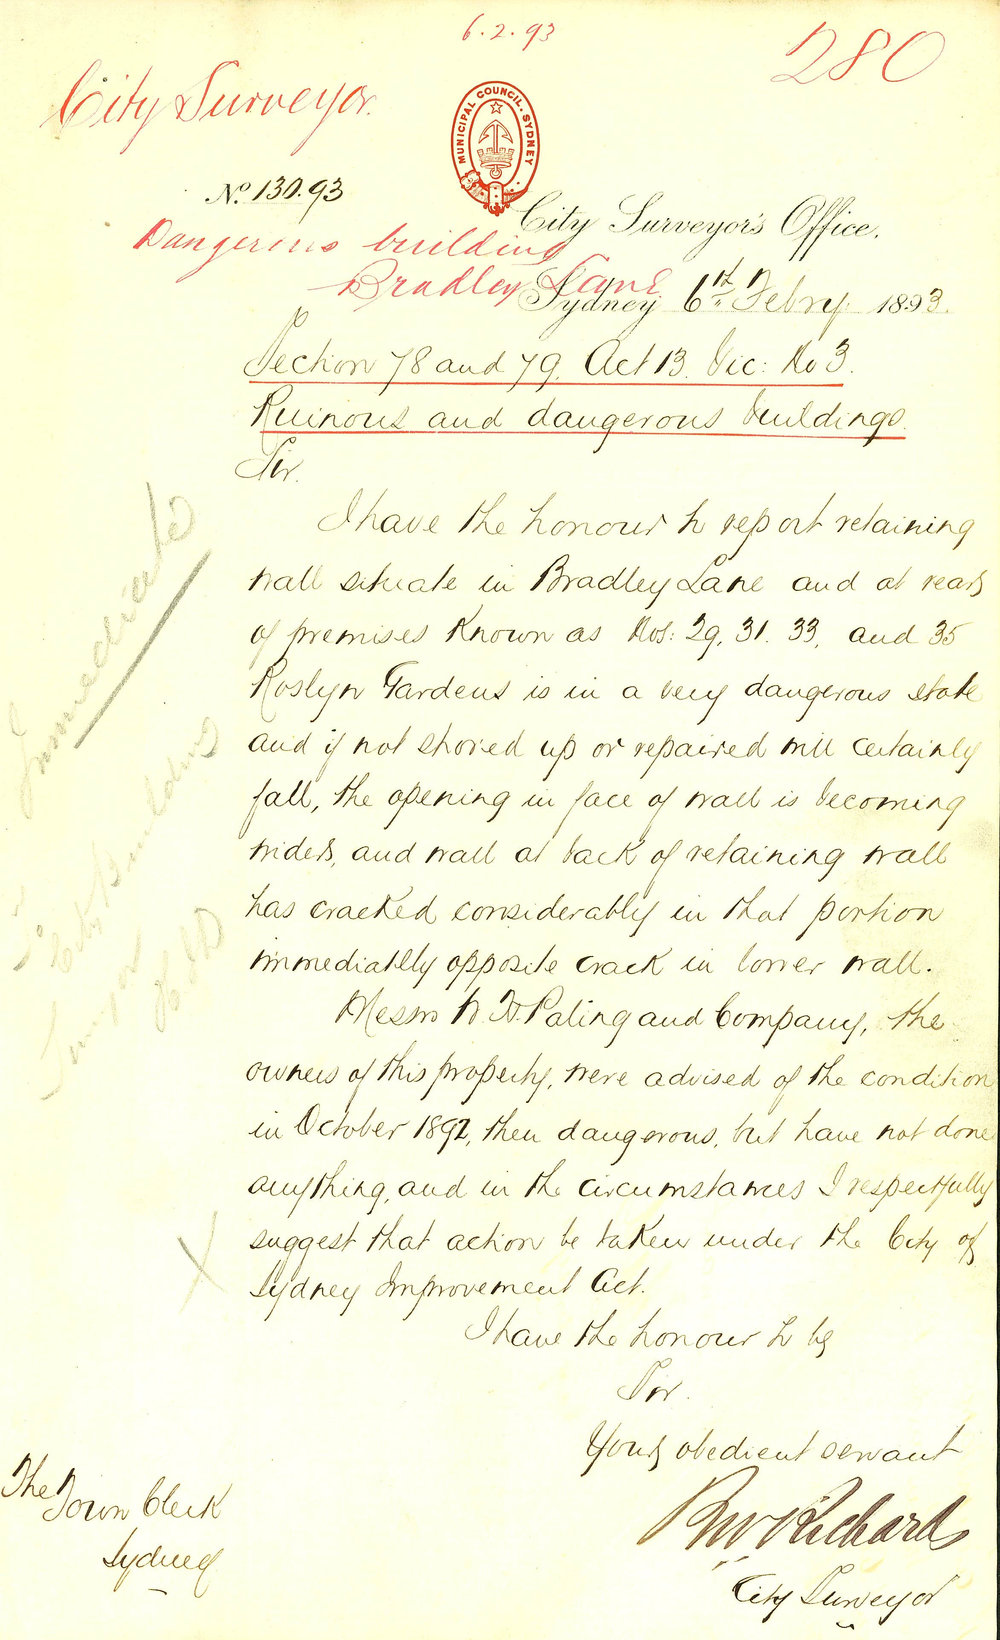 6.2.93
280
City Surveyor.
MUNICIPAL COUNCIL. SYDNEY
No. 130.93
City Surveyor's Office.
Dangerous building
Bradley Lane
Sydney 6th Febry. 1893.
Section 78 and 79. Act 13. Vic: No 3.
Ruinous and dangerous buildings.
Sir.
I have the honour to report retaining
wall situate in Bradley Lane and at rear
of premises known as Nos: 29, 31. 33, and 35
Roslyn Gardens is in a very dangerous state
and if not shored up or repaired will certainly
fall, the opening in face of wall is becoming
wider, and wall at back of retaining wall
has cracked considerably in that portion
immediatlly opposite crack in lower wall.
Messrs W. H. Paling and Company, the
owners of this property, were advised of the condition
in October 1892, then dangerous, but have not done
anything, and in the circumstances I respectfully
suggest that action be taken under the City of
Sydney Improvement Act.
I have the honour to be
Sir.
Your obedient servant
Richards
City Surveyor
The Town Clerk
Sydney
Immediate
City Building
Surveyor